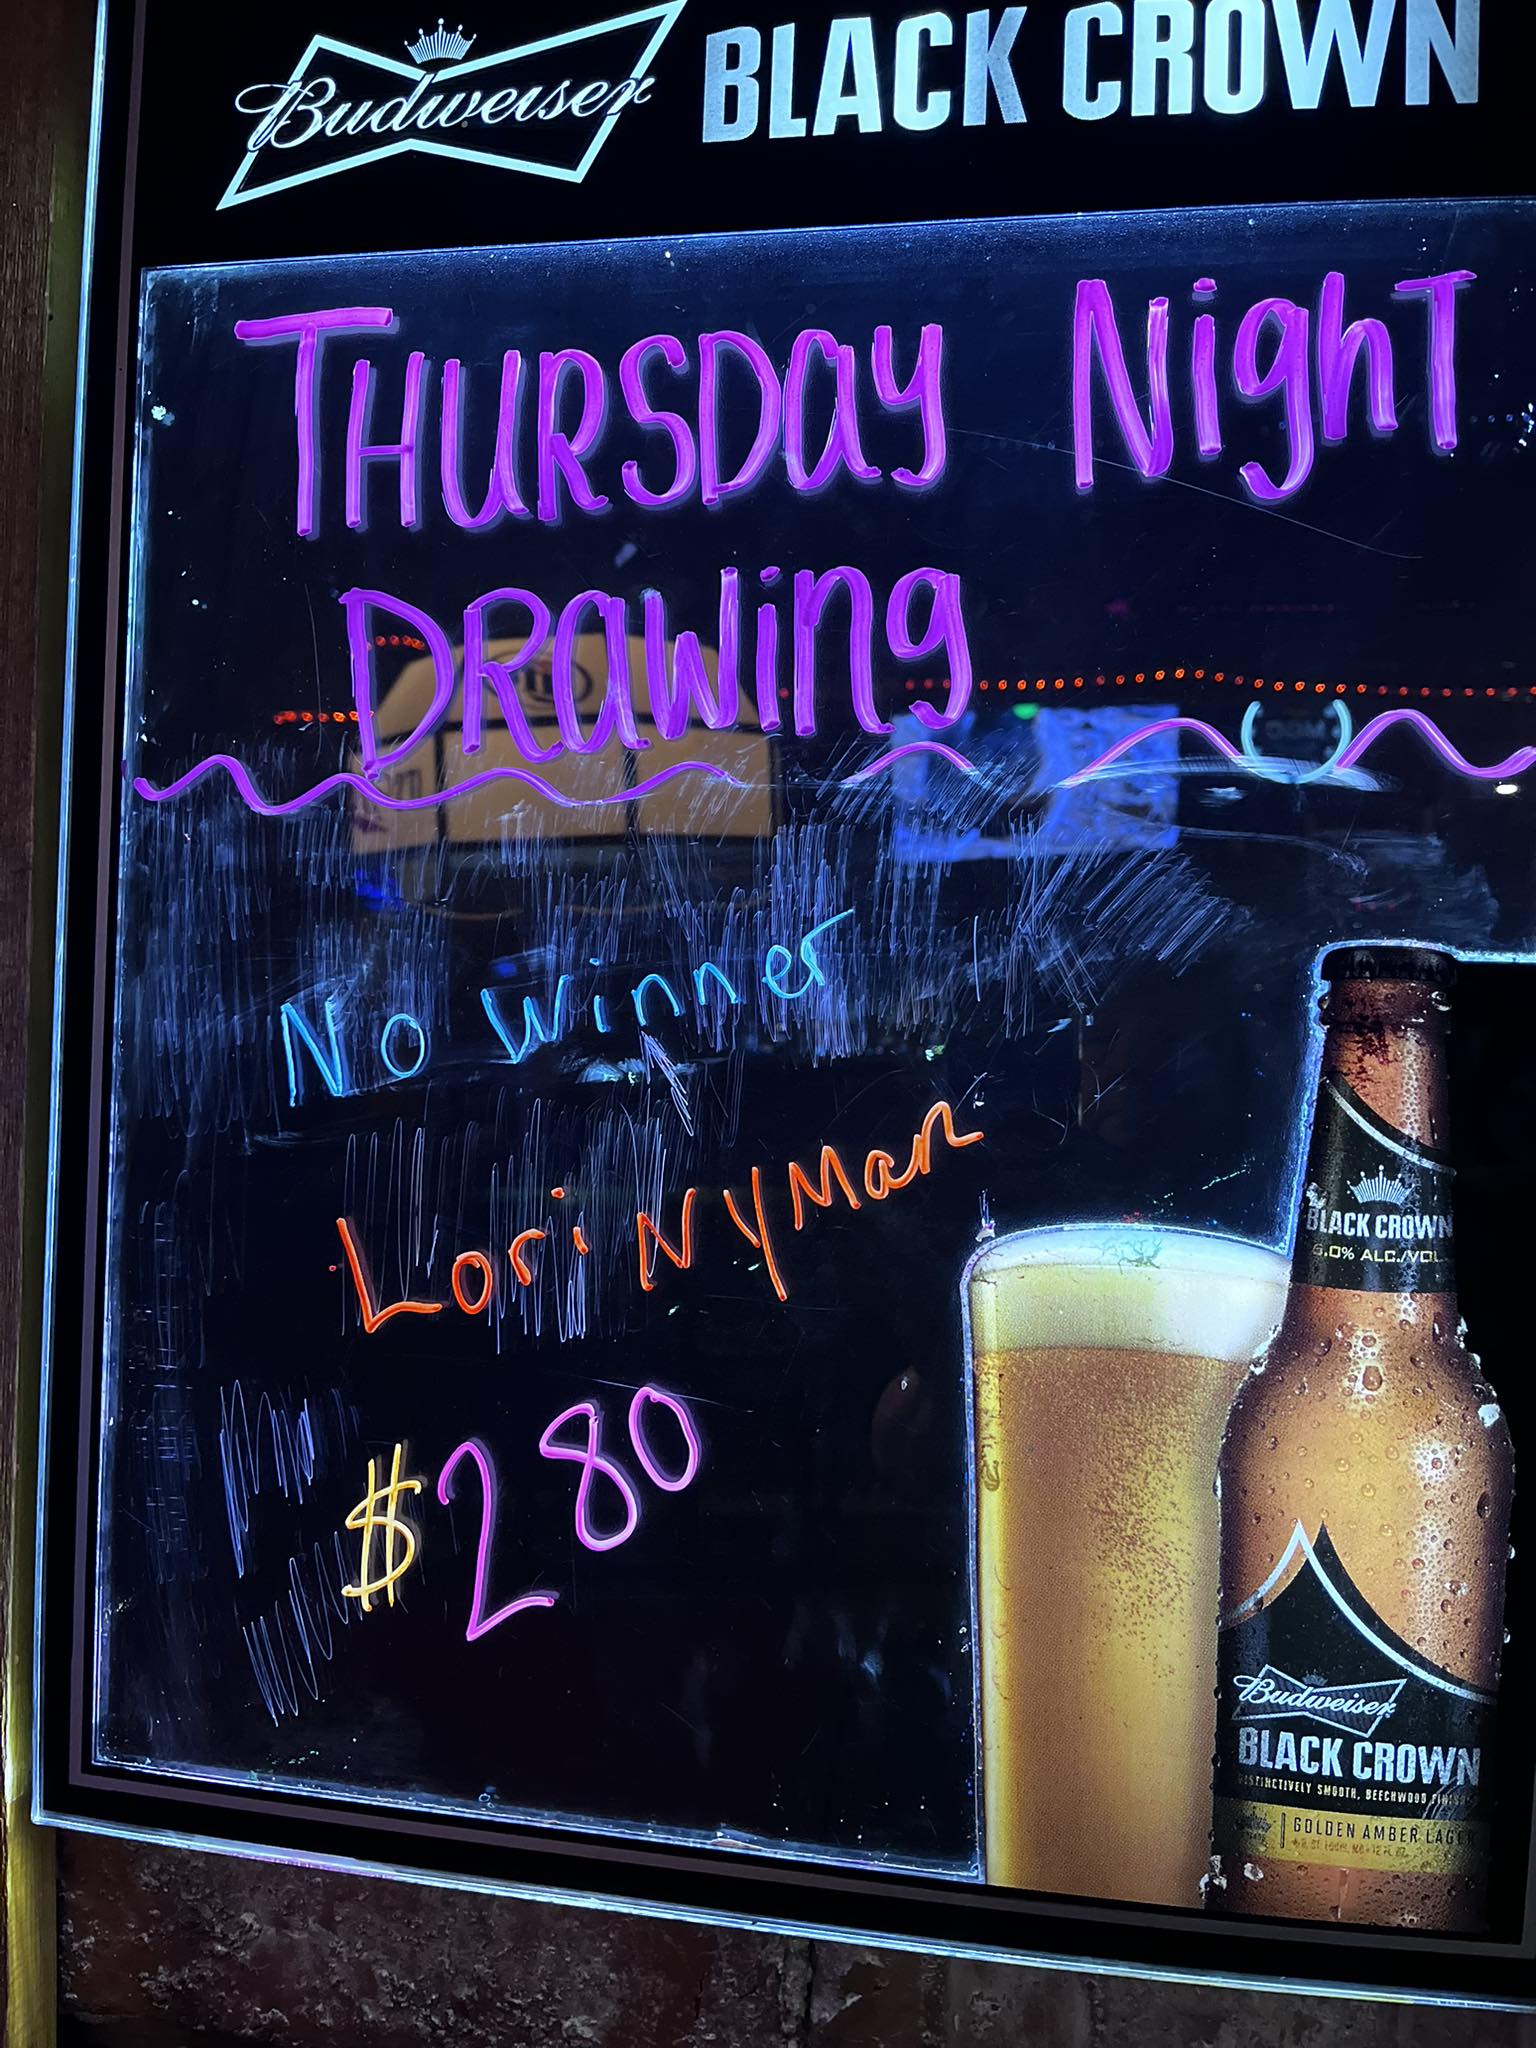 Budweiser BLACK CROWN
THURSDAY NighT
DRAwing
No winner
Lori NyMan
$280
BLACK CROWN
6.0% ALC./VOL.
Budweiser
BLACK CROWN
DISTINCTIVELY SMOOTH, BEECHWOOD
GOLDEN AMBER LAGER